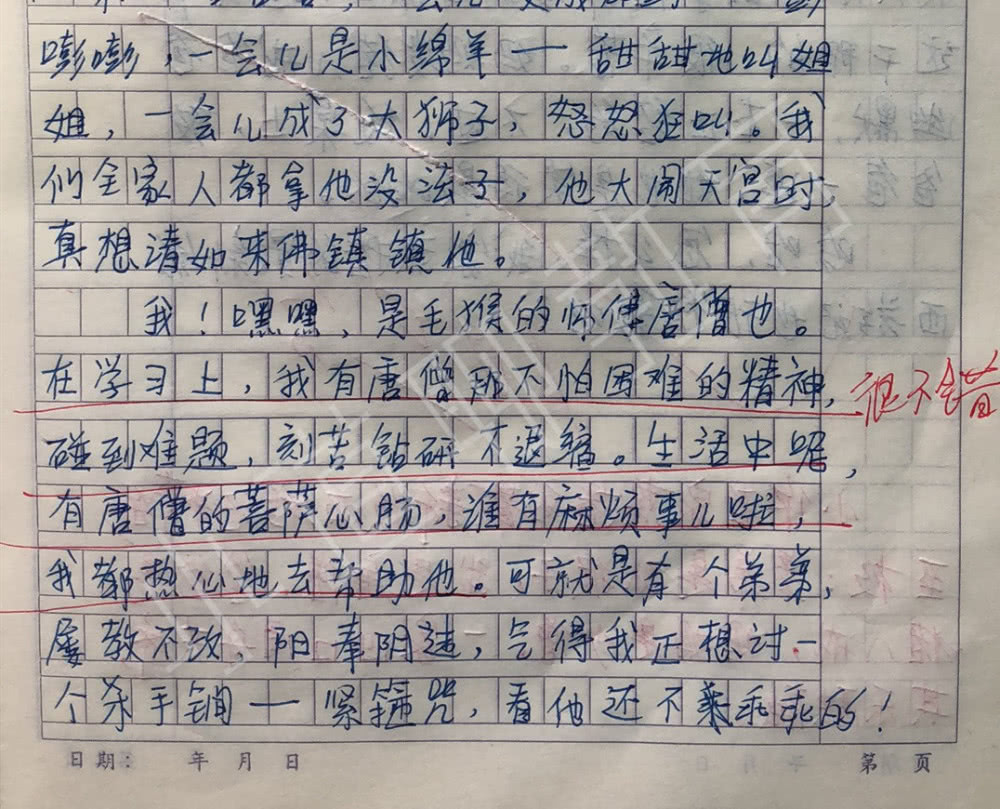 嘭嘭，一会儿是小绵羊一一。甜甜地叫姐
姐，一会儿成了大狮子，怒怒狂叫。我
们全家人都拿他没法子，他大闹天宫时，
真想请如来佛镇镇他。
我！嘿嘿，是毛猴的师傅唐僧也。
在学习上，我有唐僧那不怕困难的精神，很不错
碰到难题，刻苦钻研不退缩。生活中呢，
有唐僧的菩萨心肠，谁有麻烦事儿啦，
我都热心地去帮助他。可就是有个弟弟，
屡教不改，阳奉阴违，气得我正想讨一
个杀手锏一紧箍咒，看他还不乖乖的！
日期： 年 月 日 第 页